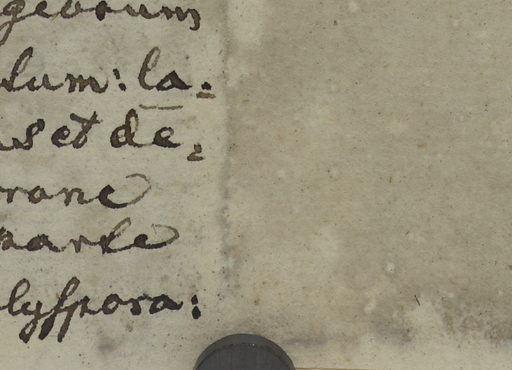 georum
lum: la-
s et de-
rone
parte
lyspora: